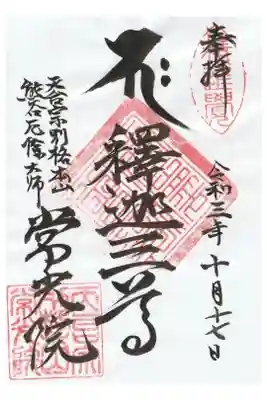 奉拝
令和三年十月十七日
釋迦三尊
天台宗別格本山
熊谷厄除大師
常光院